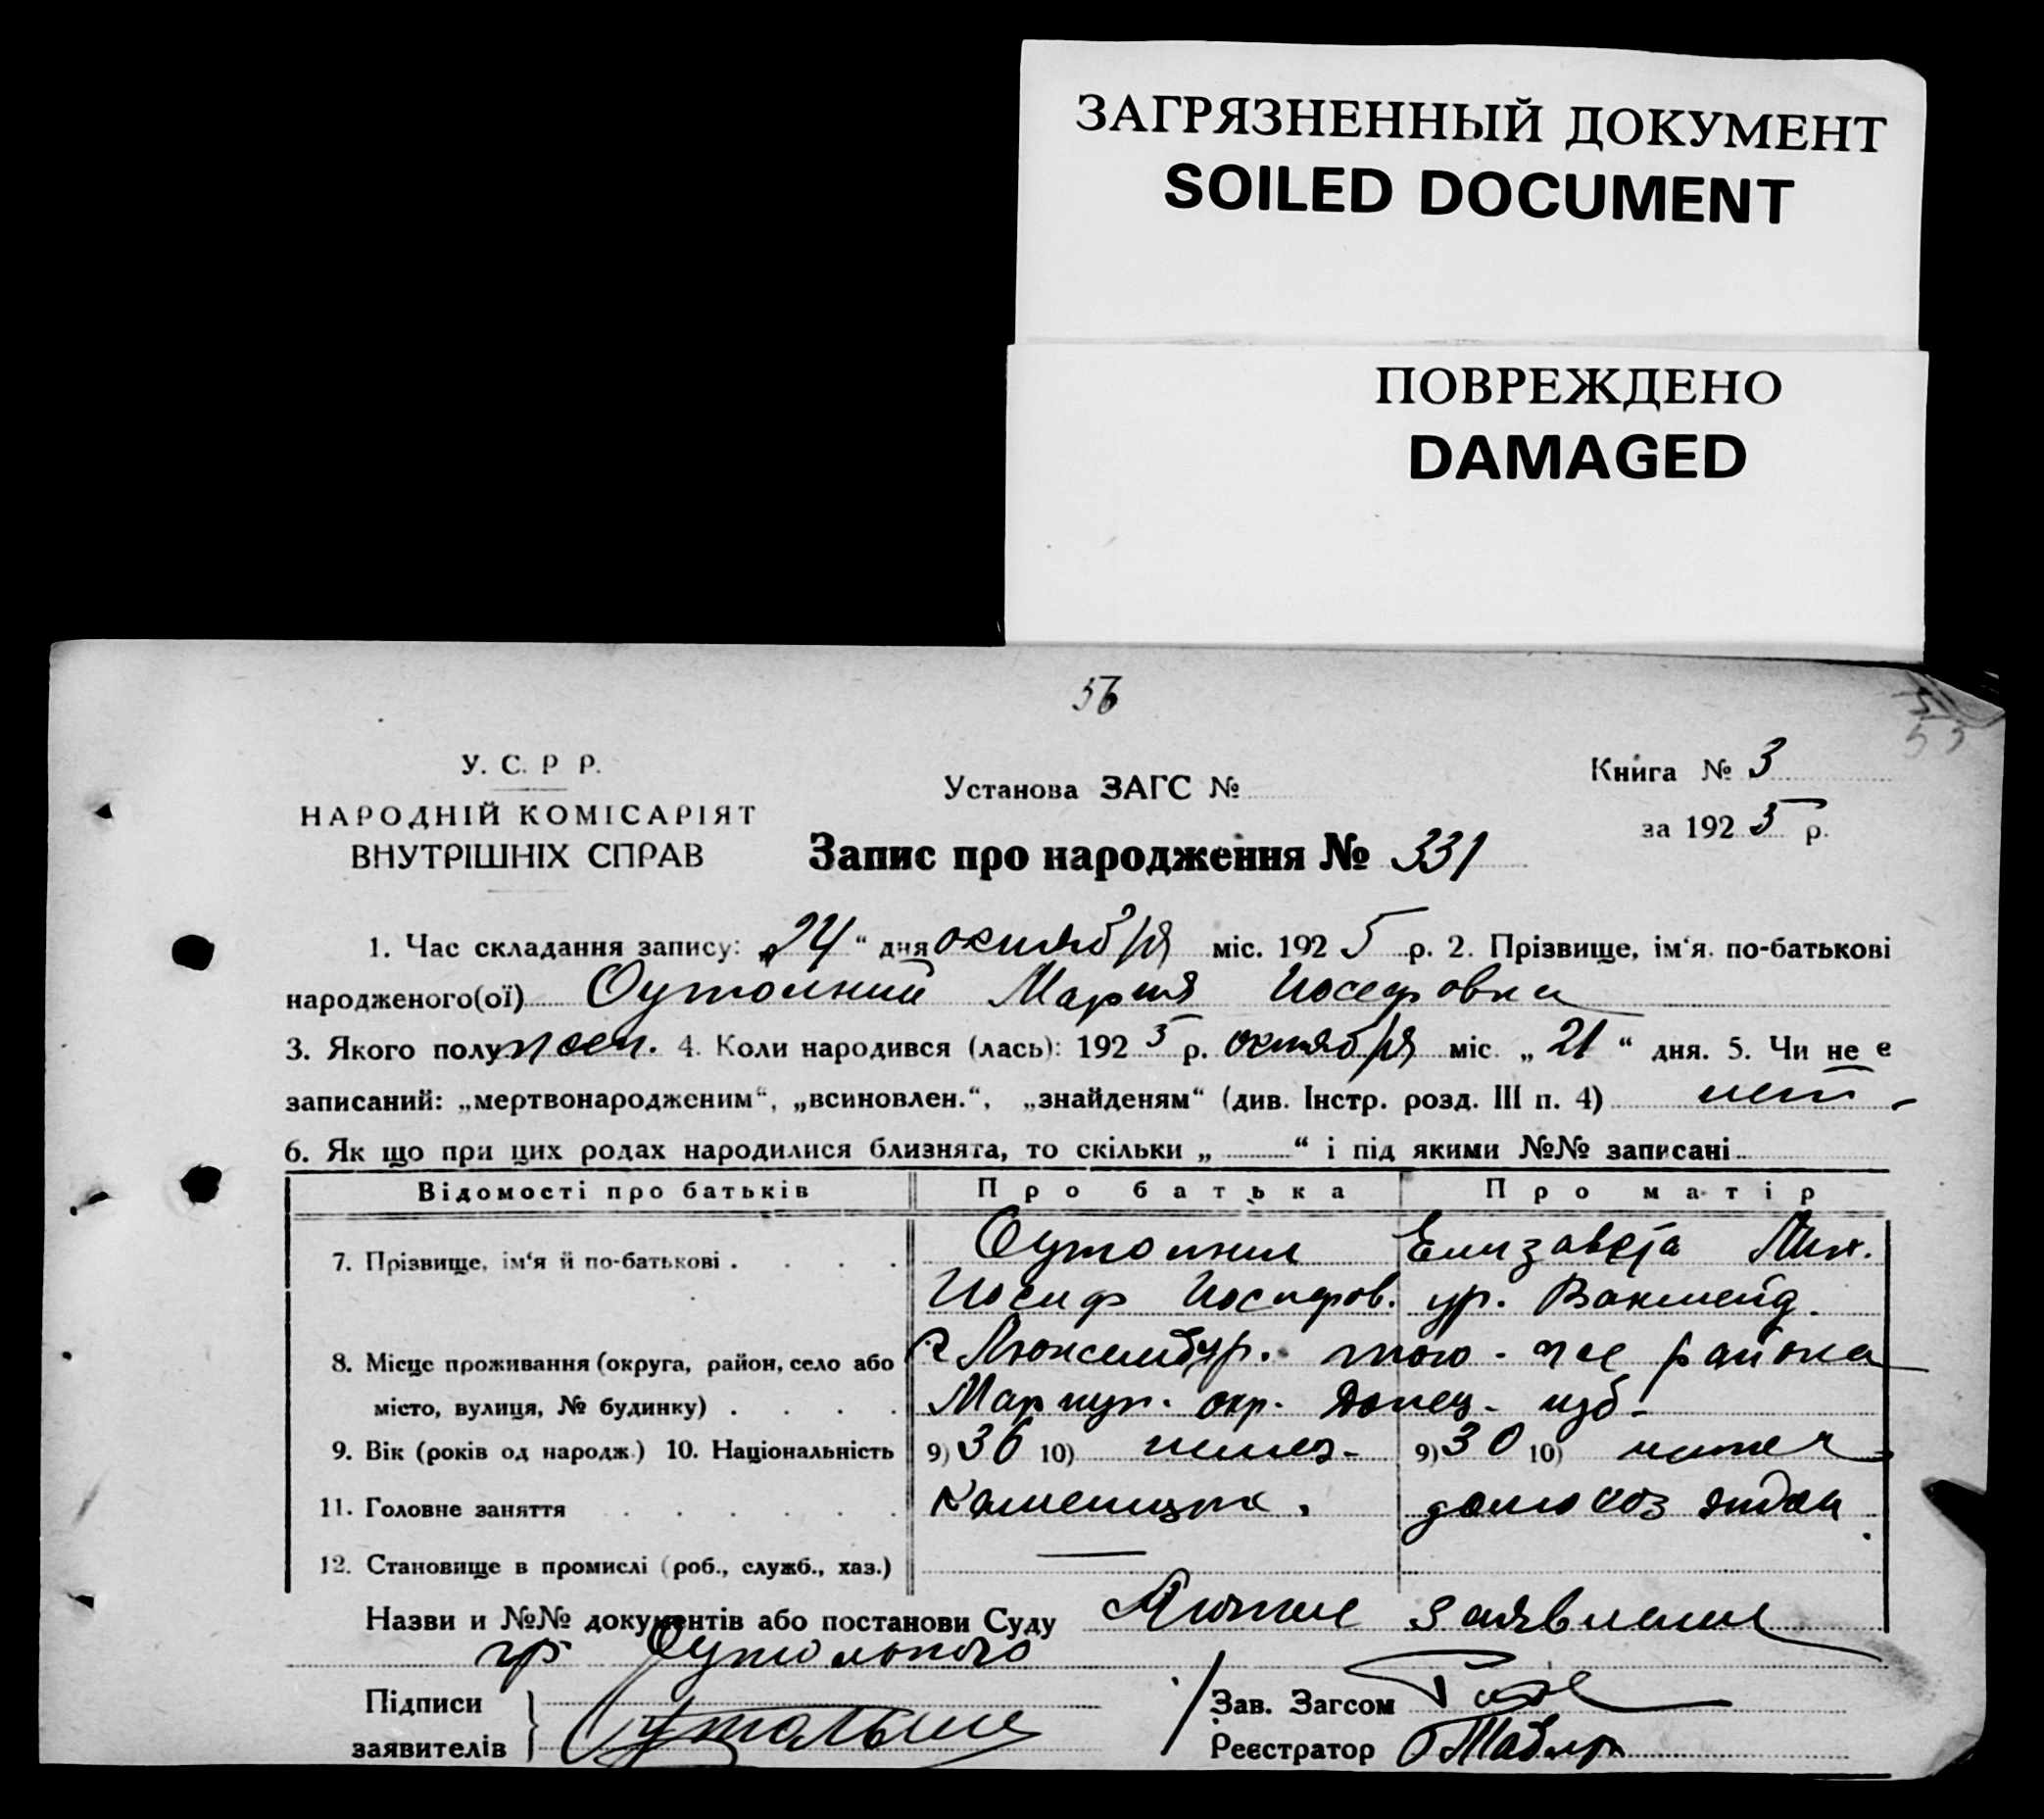 ЗАГРЯЗНЕННЫЙ ДОКУМЕНТ
SOILED DOCUMENT
ПОВРЕЖДЕНО
DAMAGED
56
У. С. Р Р.
НАРОДНІЙ КОМІСАРІЯТ
ВНУТРІШНІХ СПРАВ
Установа ЗАГС №
Книга № 3
за 1925 р.
Запис про народження № 331
1. Час складання запису: „24“ дня октября міс. 1925 р. 2. Прізвище, ім‘я, по-батькові
народженого(ої) Мария Иосефовна
3. Якого полу жен. 4. Коли народився (лась): 1925 р. октября міс. „21“ дня. 5. Чи не е
записаний: „мертвонародженим“, „всиновлен.“, „знайденям“ (див. Інстр. розд. III п. 4) нет
6. Як що при цих родах народилися близнята, то скільки „ “ і під якими №№ записані
Відомості про батьків Про батька Про матір
7. Прізвище, ім‘я й по-батькові . . . . Елизавета Мих.
Иосиф Иосифов. ур.
8. Місце проживання (округа, район, село або Люксембур. того-же района
місто, вулиця, № будинку) . . . . Мариуп. окр. Донец. губ.
9. Вік (років од народж.) 10. Національність 9) 36 10) немец. 9) 30 10) немец
11. Головне заняття . . . . . . Каменщик. домохоз
12. Становище в промислі (роб., служб., хаз.) —
Назви и №№ документів або постанови Суду Личное заявление
гр
Підписи
заявителів
Зав. Загсом
Реєстратор